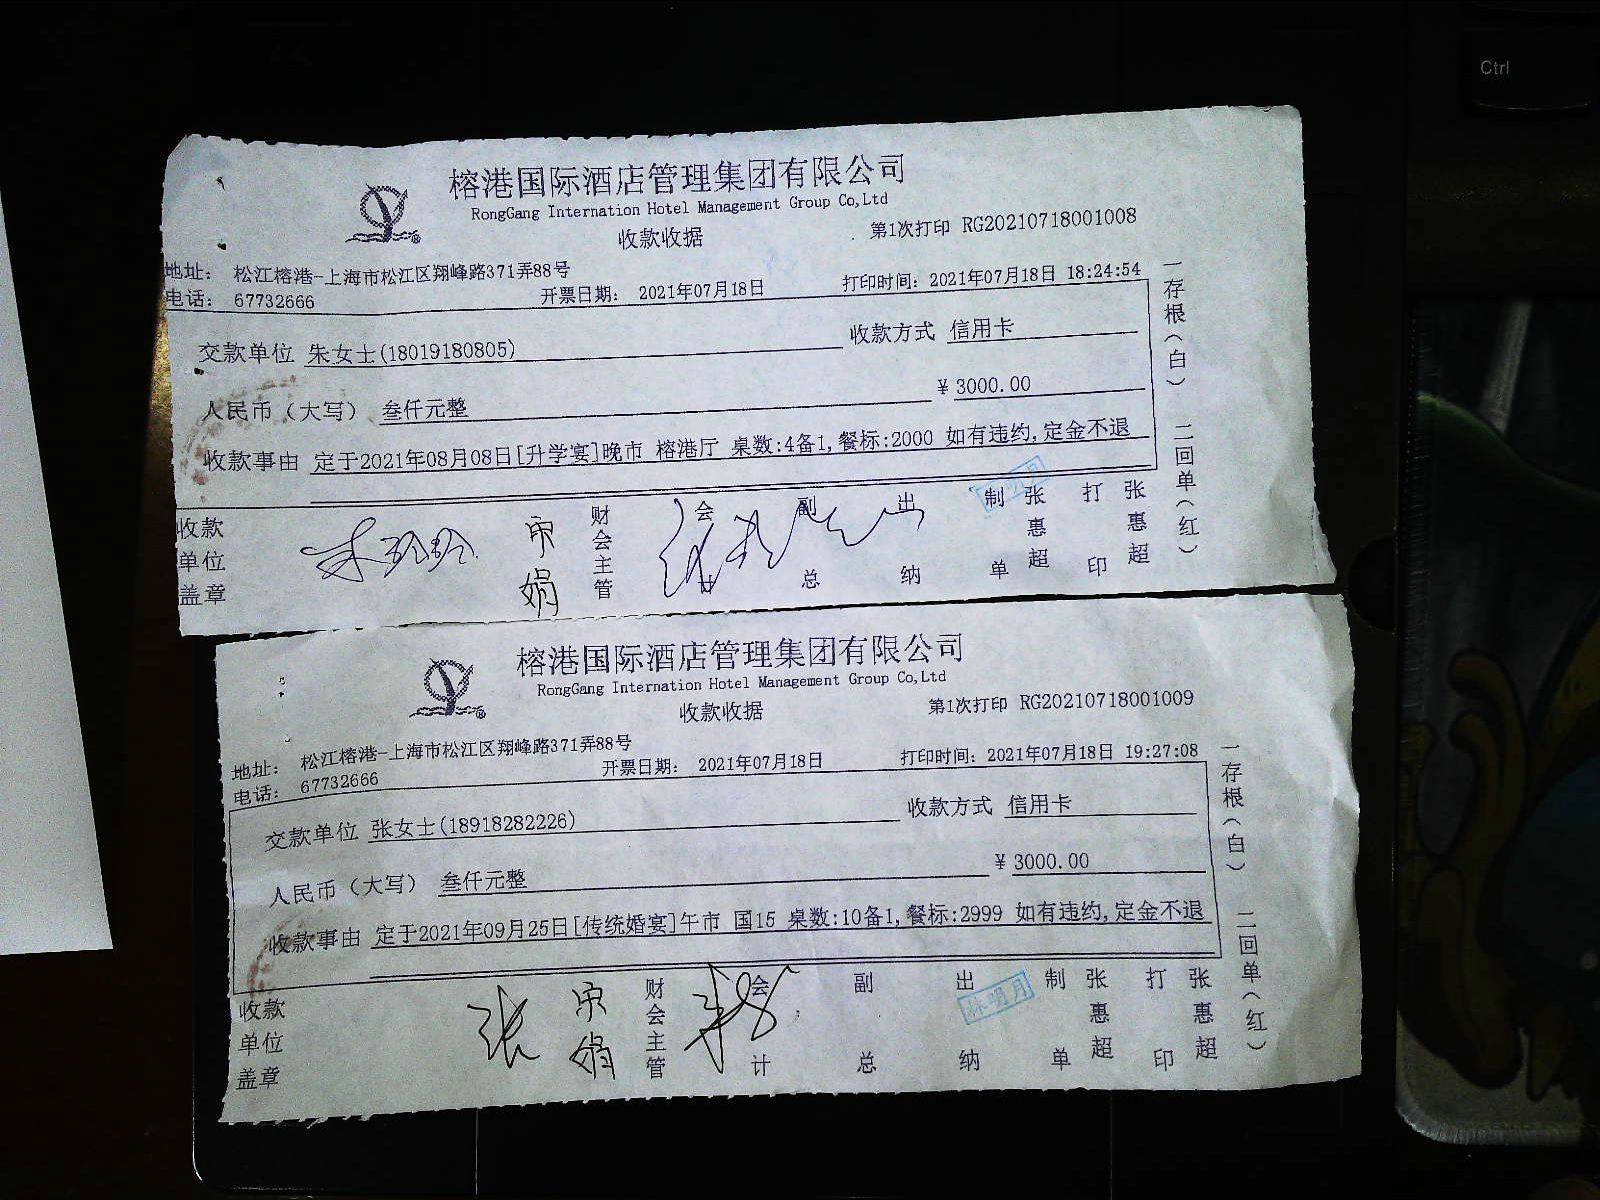 Ctrl
榕港国际酒店管理集团有限公司
RongGang Internation Hotel Management Group Co,Ltd
收款收据
第1次打印 RG20210718001008
地址： 松江榕港-上海市松江区翔峰路371弄88号
电话： 67732666
开票日期： 2021年07月18日
打印时间：2021年07月18日 18:24:54
交款单位 朱女士(18019180805)
收款方式 信用卡
人民币（大写） 叁仟元整
¥ 3000.00
收款事由 定于2021年08月08日[升学宴]晚市 榕港厅 桌数:4备1,餐标:2000 如有违约,定金不退
一存根（白） 二回单（红）
收款单位盖章
财会主管
会计
副总
出纳
制单
张惠超
打印
张惠超
榕港国际酒店管理集团有限公司
RongGang Internation Hotel Management Group Co,Ltd
收款收据
第1次打印 RG20210718001009
地址： 松江榕港-上海市松江区翔峰路371弄88号
电话： 67732666
开票日期： 2021年07月18日
打印时间：2021年07月18日 19:27:08
交款单位 张女士(18918282226)
收款方式 信用卡
人民币（大写） 叁仟元整
¥ 3000.00
收款事由 定于2021年09月25日[传统婚宴]午市 国15 桌数:10备1,餐标:2999 如有违约,定金不退
一存根（白） 二回单（红）
收款单位盖章
张
财会主管
会计
副总
出纳
林明月
制单
张惠超
打印
张惠超